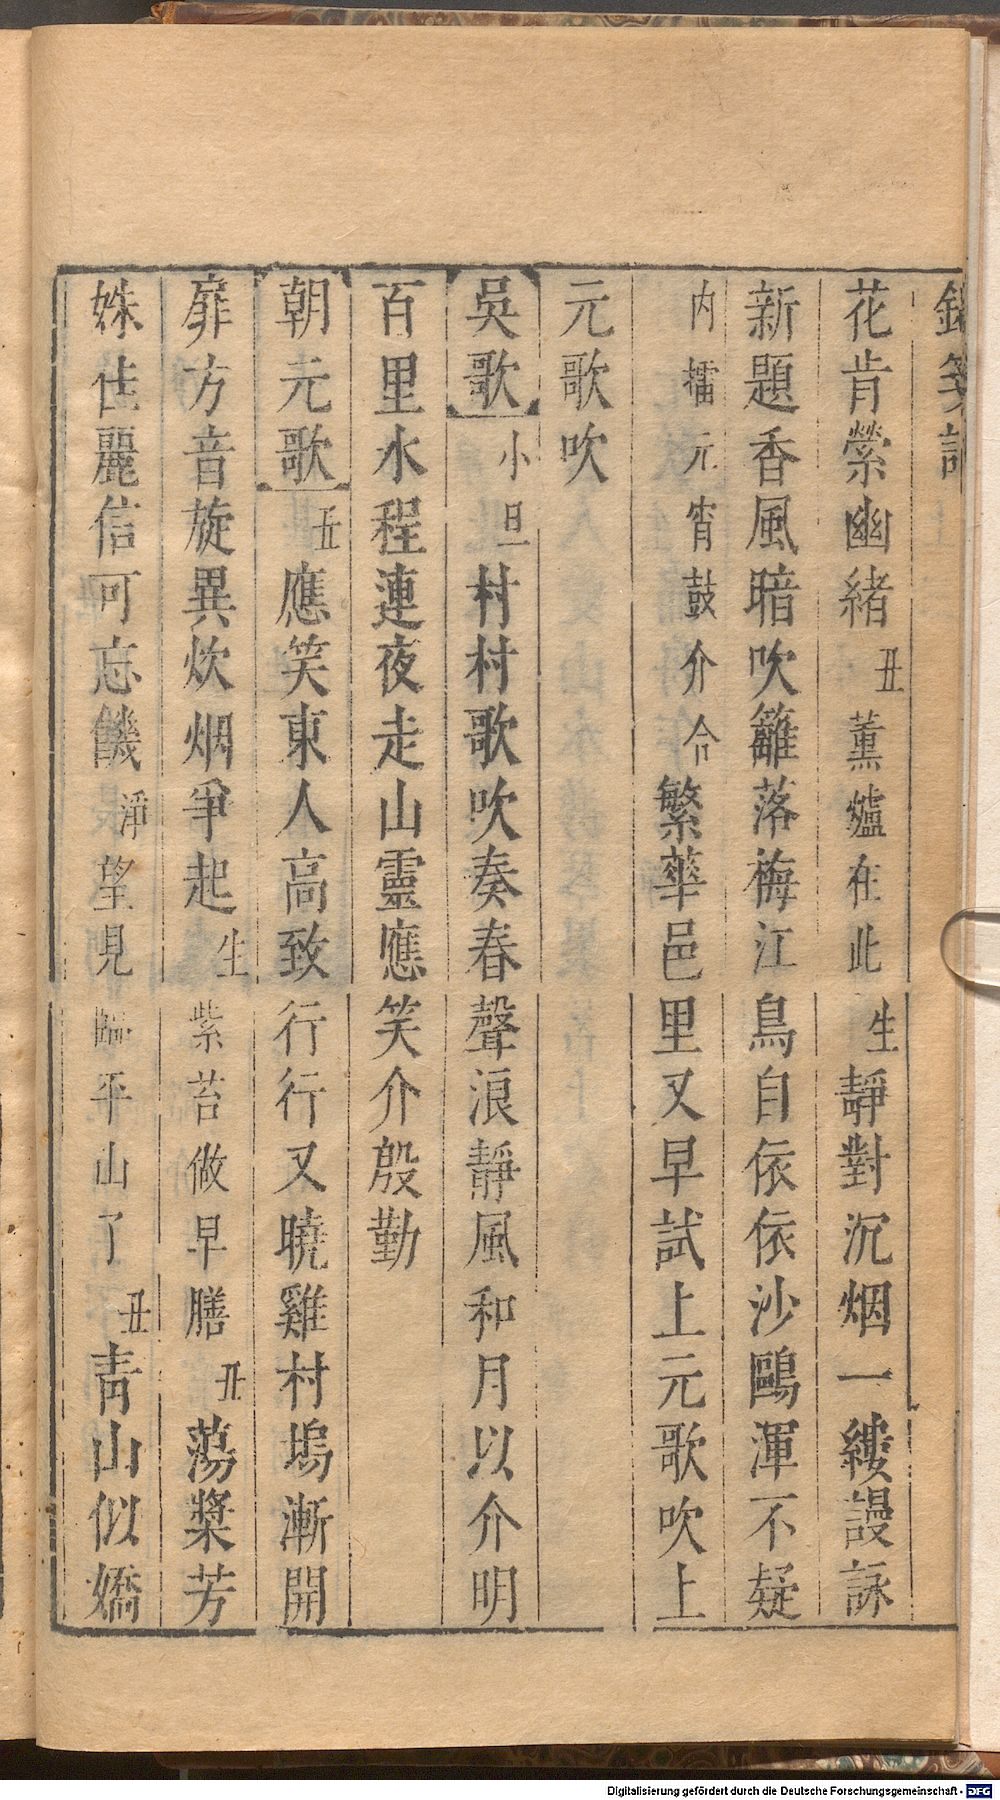 花肯縈幽緒丑薰爐在此生靜對沉烟一縷謾詠
新題香風暗吹籬落梅江鳥自依依沙鷗渾不疑
内擂元宵鼓介合繁華邑里又早試上元歌吹上
元歌吹
吳歌小旦村村歌吹奏春聲浪靜風和月以介明
百里水程連夜走山靈應笑介殷勤
朝元歌丑應笑東人高致行行又曉雞村塢漸開
扉方音旋異炊烟爭起生紫苔做早膳丑蕩槳芳
姝佳麗信可忘饑淨望見臨平山了丑青山似嬌
Digitalisierung gefördert durch die Deutsche Forschungsgemeinschaft - DFG